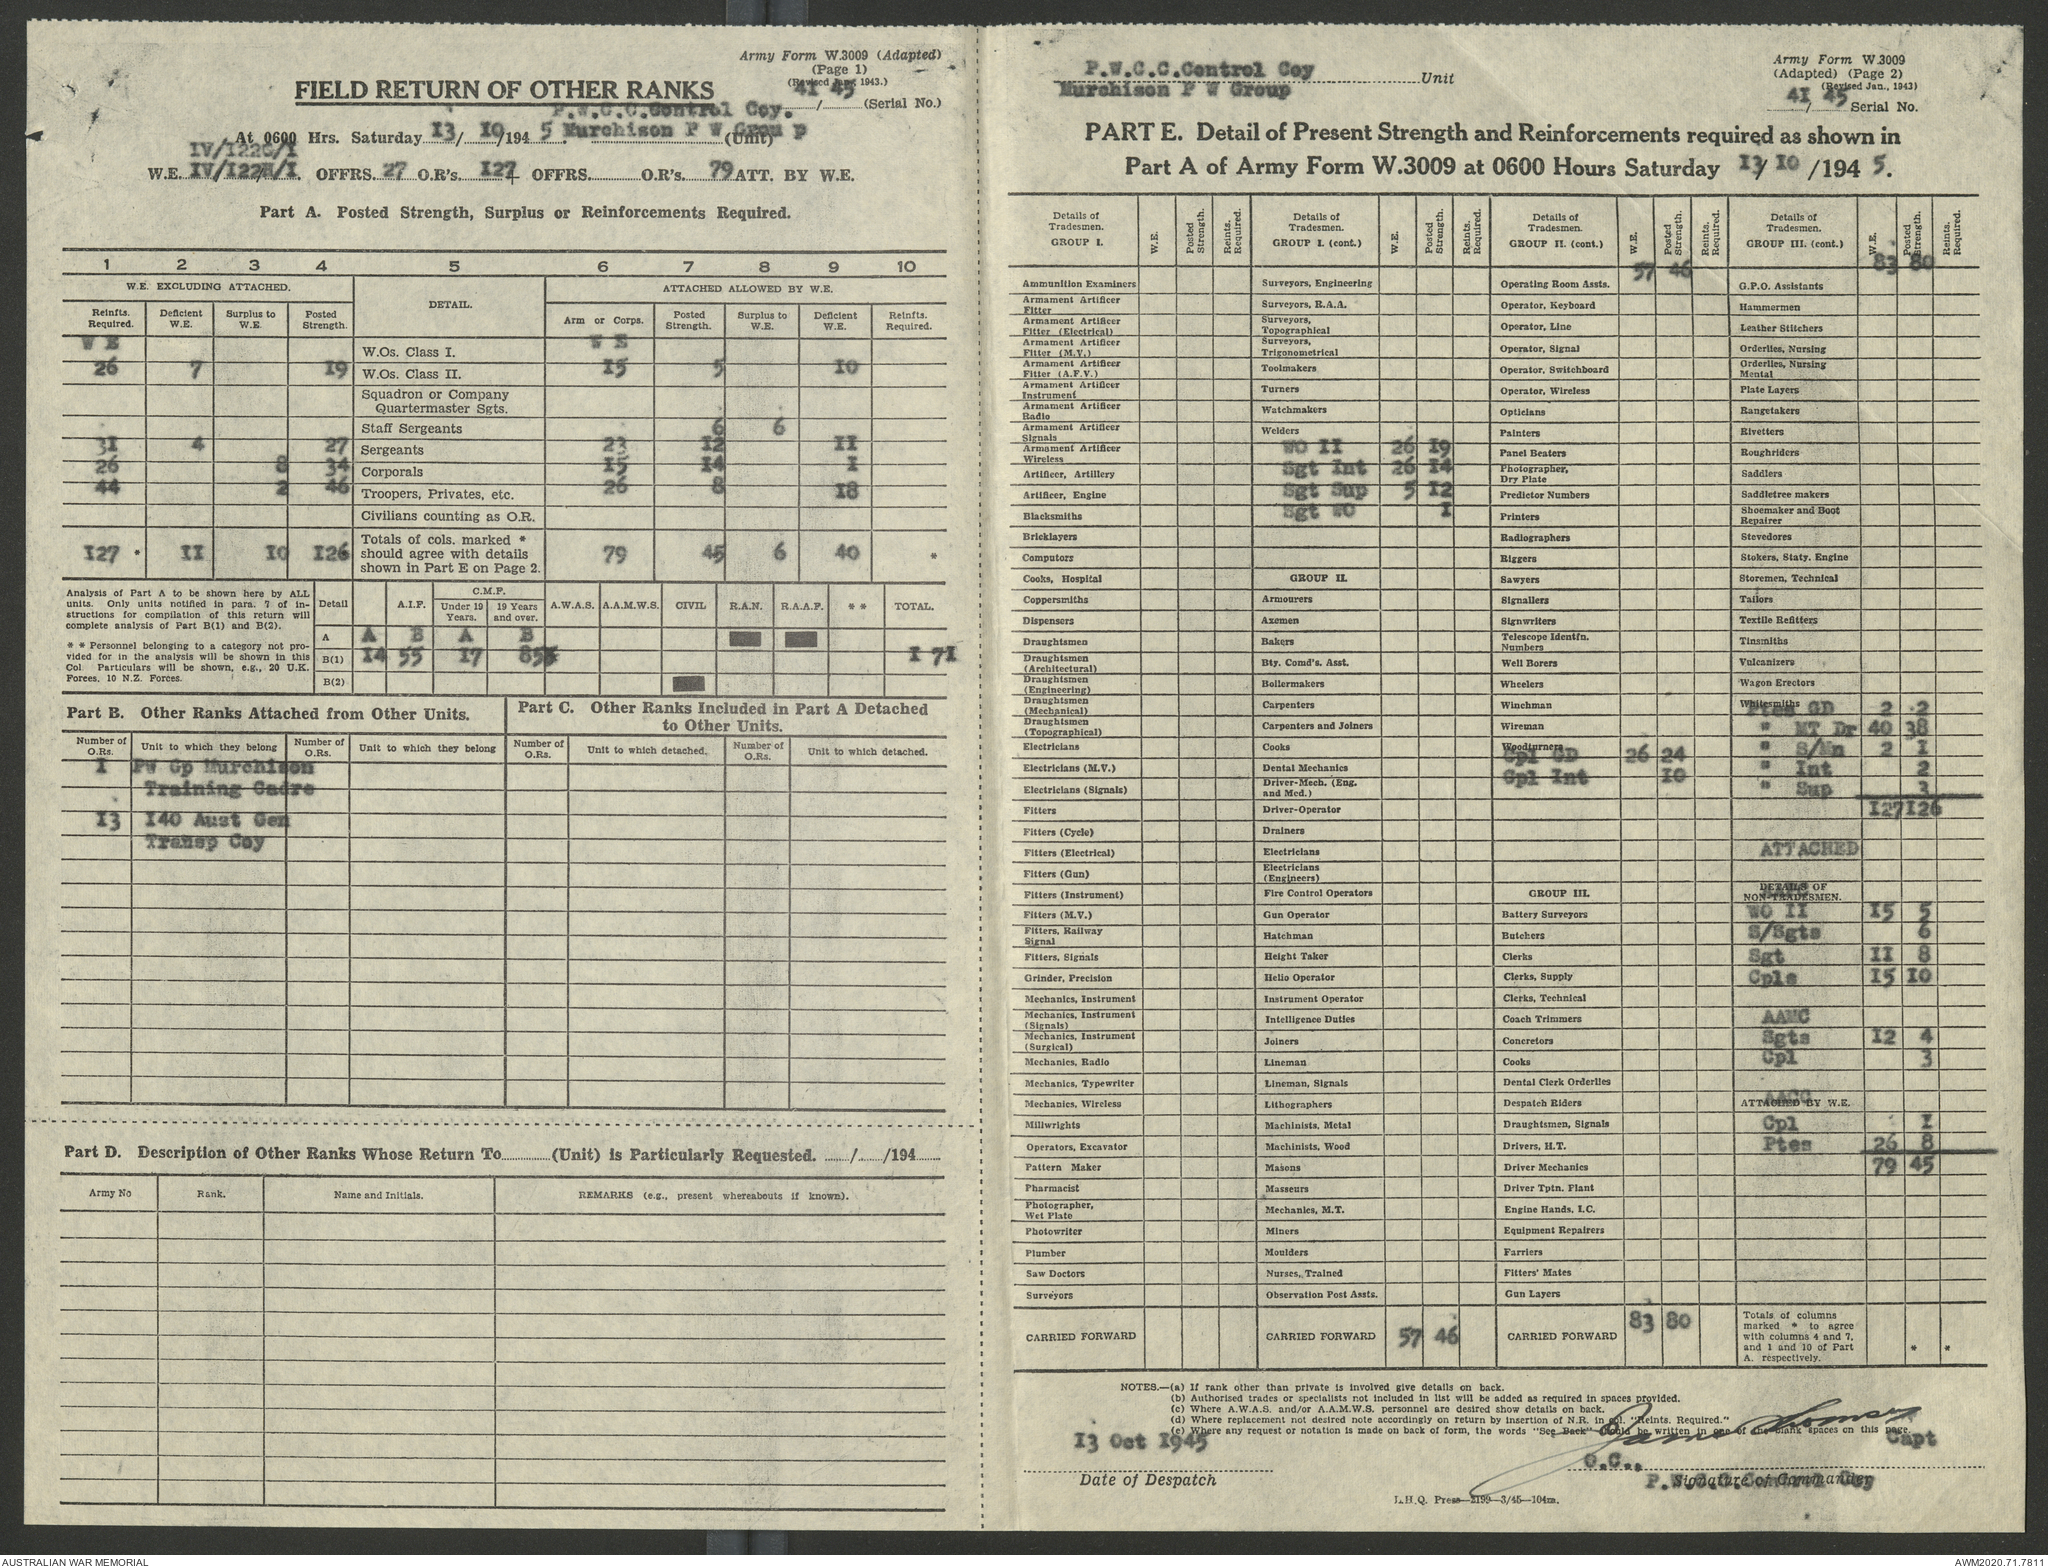 Army Form W.3009 (Adapted)
(Page 1)
(Revised Jan., 1943.)
FIELD RETURN OF OTHER RANKS
41/45 (Serial No.)
P.W.C.C.Control Coy.
At 0600 Hrs. Saturday 13/10/1945 Murchison P W Group (Unit)
IV/122G/1
W.E. IV/122H/1. OFFRS. 27 O.R's. 127 + OFFRS. O.R's. 79 ATT. BY W.E.
Part A. Posted Strength, Surplus or Reinforcements Required.
1 2 3 4 5 6 7 8 9 10
W.E. EXCLUDING ATTACHED. DETAIL. ATTACHED ALLOWED BY W.E.
Reinfts. Required. Deficient W.E. Surplus to W.E. Posted Strength. Arm or Corps. Posted Strength. Surplus to W.E. Deficient W.E. Reinfts. Required.
W E W.Os. Class I. W E
26 7 19 W.Os. Class II. 15 5 10
Squadron or Company Quartermaster Sgts.
Staff Sergeants 6 6
31 4 27 Sergeants 23 12 11
26 8 34 Corporals 15 14 1
44 2 46 Troopers, Privates, etc. 26 8 18
Civilians counting as O.R.
127 * 11 10 126 Totals of cols. marked * should agree with details shown in Part E on Page 2. 79 45 6 40 *
Analysis of Part A to be shown here by ALL
units. Only units notified in para. 7 of in-
structions for compilation of this return will
complete analysis of Part B(1) and B(2).
* * Personnel belonging to a category not pro-
vided for in the analysis will be shown in this
Col Particulars will be shown, e.g., 20 U.K.
Forces, 10 N.Z. Forces.
Detail A.I.F. C.M.F. Under 19 Years. 19 Years and over. A.W.A.S. A.A.M.W.S. CIVIL R.A.N. R.A.A.F. * * TOTAL.
A A B A B
B(1) 14 55 17 85 171
B(2)
Part B. Other Ranks Attached from Other Units.
Number of O.Rs. Unit to which they belong Number of O.Rs. Unit to which they belong
1 PW Gp Murchison
Training Cadre
13 140 Aust Gen
Transp Coy
Part C. Other Ranks Included in Part A Detached
to Other Units.
Number of O.Rs. Unit to which detached. Number of O.Rs. Unit to which detached.
Part D. Description of Other Ranks Whose Return To (Unit) is Particularly Requested. / /194
Army No Rank. Name and Initials. REMARKS (e.g., present whereabouts if known).
P.W.C.C.Control Coy Unit
Murchison P W Group
Army Form W.3009
(Adapted) (Page 2)
(Revised Jan., 1943)
41/45 Serial No.
PART E. Detail of Present Strength and Reinforcements required as shown in
Part A of Army Form W.3009 at 0600 Hours Saturday 13/10/1945.
Details of Tradesmen. GROUP I. W.E. Posted Strength. Reints. Required.
Ammunition Examiners
Armament Artificer Fitter
Armament Artificer Fitter (Electrical)
Armament Artificer Fitter (M.V.)
Armament Artificer Fitter (A.F.V.)
Armament Artificer Instrument
Armament Artificer Radio
Armament Artificer Signals
Armament Artificer Wireless
Artificer, Artillery
Artificer, Engine
Blacksmiths
Bricklayers
Computors
Cooks, Hospital
Coppersmiths
Dispensers
Draughtsmen
Draughtsmen (Architectural)
Draughtsmen (Engineering)
Draughtsmen (Mechanical)
Draughtsmen (Topographical)
Electricians
Electricians (M.V.)
Electricians (Signals)
Fitters
Fitters (Cycle)
Fitters (Electrical)
Fitters (Gun)
Fitters (Instrument)
Fitters (M.V.)
Fitters, Railway Signal
Fitters, Signals
Grinder, Precision
Mechanics, Instrument
Mechanics, Instrument (Signals)
Mechanics, Instrument (Surgical)
Mechanics, Radio
Mechanics, Typewriter
Mechanics, Wireless
Millwrights
Operators, Excavator
Pattern Maker
Pharmacist
Photographer, Wet Plate
Photowriter
Plumber
Saw Doctors
Surveyors
CARRIED FORWARD
Details of Tradesmen. GROUP I. (cont.) W.E. Posted Strength. Reints. Required.
Surveyors, Engineering
Surveyors, R.A.A.
Surveyors, Topographical
Surveyors, Trigonometrical
Toolmakers
Turners
Watchmakers
Welders
WO II 26 19
Sgt Int 26 14
Sgt Sup 5 12
Sgt WO 1
GROUP II.
Armourers
Axemen
Bakers
Bty. Comd's. Asst.
Boilermakers
Carpenters
Carpenters and Joiners
Cooks
Dental Mechanics
Driver-Mech. (Eng. and Med.)
Driver-Operator
Drainers
Electricians
Electricians (Engineers)
Fire Control Operators
Gun Operator
Hatchman
Height Taker
Helio Operator
Instrument Operator
Intelligence Duties
Joiners
Lineman
Lineman, Signals
Lithographers
Machinists, Metal
Machinists, Wood
Masons
Masseurs
Mechanics, M.T.
Miners
Moulders
Nurses, Trained
Observation Post Assts.
CARRIED FORWARD 57 46
Details of Tradesmen. GROUP II. (cont.) W.E. Posted Strength. Reints. Required.
57 46
Operating Room Assts.
Operator, Keyboard
Operator, Line
Operator, Signal
Operator, Switchboard
Operator, Wireless
Opticians
Painters
Panel Beaters
Photographer, Dry Plate
Predictor Numbers
Printers
Radiographers
Riggers
Sawyers
Signallers
Signwriters
Telescope Identfn. Numbers
Well Borers
Wheelers
Winchman
Wireman
Woodturners
Cpl GD 26 24
Cpl Int 10
GROUP III.
Battery Surveyors
Butchers
Clerks
Clerks, Supply
Clerks, Technical
Coach Trimmers
Concretors
Cooks
Dental Clerk Orderlies
Despatch Riders
Draughtsmen, Signals
Drivers, H.T.
Driver Mechanics
Driver Tptn. Plant
Engine Hands, I.C.
Equipment Repairers
Farriers
Fitters' Mates
Gun Layers
CARRIED FORWARD 83 80
Details of Tradesmen. GROUP III. (cont.) W.E. Posted Strength. Reints. Required.
83 80
G.P.O. Assistants
Hammermen
Leather Stitchers
Orderlies, Nursing
Orderlies, Nursing Mental
Plate Layers
Rangetakers
Rivetters
Roughriders
Saddlers
Saddletree makers
Shoemaker and Boot Repairer
Stevedores
Stokers, Staty. Engine
Storemen, Technical
Tailors
Textile Refitters
Tinsmiths
Vulcanizers
Wagon Erectors
Whitesmiths
Ptes GD 2 2
" MT Dr 40 38
" S/Mn 2 1
" Int 2
" Sup 3
127 126
ATTACHED
DETAILS OF NON-TRADESMEN.
WO II 15 5
S/Sgts 6
Sgt 11 8
Cpls 15 10
AAMC
Sgts 12 4
Cpl 3
AACC
ATTACHED BY W.E.
Cpl 1
Ptes 26 8
79 45
Totals of columns marked * to agree with columns 4 and 7, and 1 and 10 of Part A. respectively. * *
NOTES.—(a) If rank other than private is involved give details on back.
(b) Authorised trades or specialists not included in list will be added as required in spaces provided.
(c) Where A.W.A.S. and/or A.A.M.W.S. personnel are desired show details on back.
(d) Where replacement not desired note accordingly on return by insertion of N.R. in col. "Reints. Required."
(e) Where any request or notation is made on back of form, the words "See Back" should be written in one of the blank spaces on this page.
13 Oct 1945
Capt
O.C.,
Date of Despatch
Signature of Commander
P.W.C.C.Control Coy
L.H.Q. Press—2199—3/45—104m.
AUSTRALIAN WAR MEMORIAL
AWM2020.71.7811